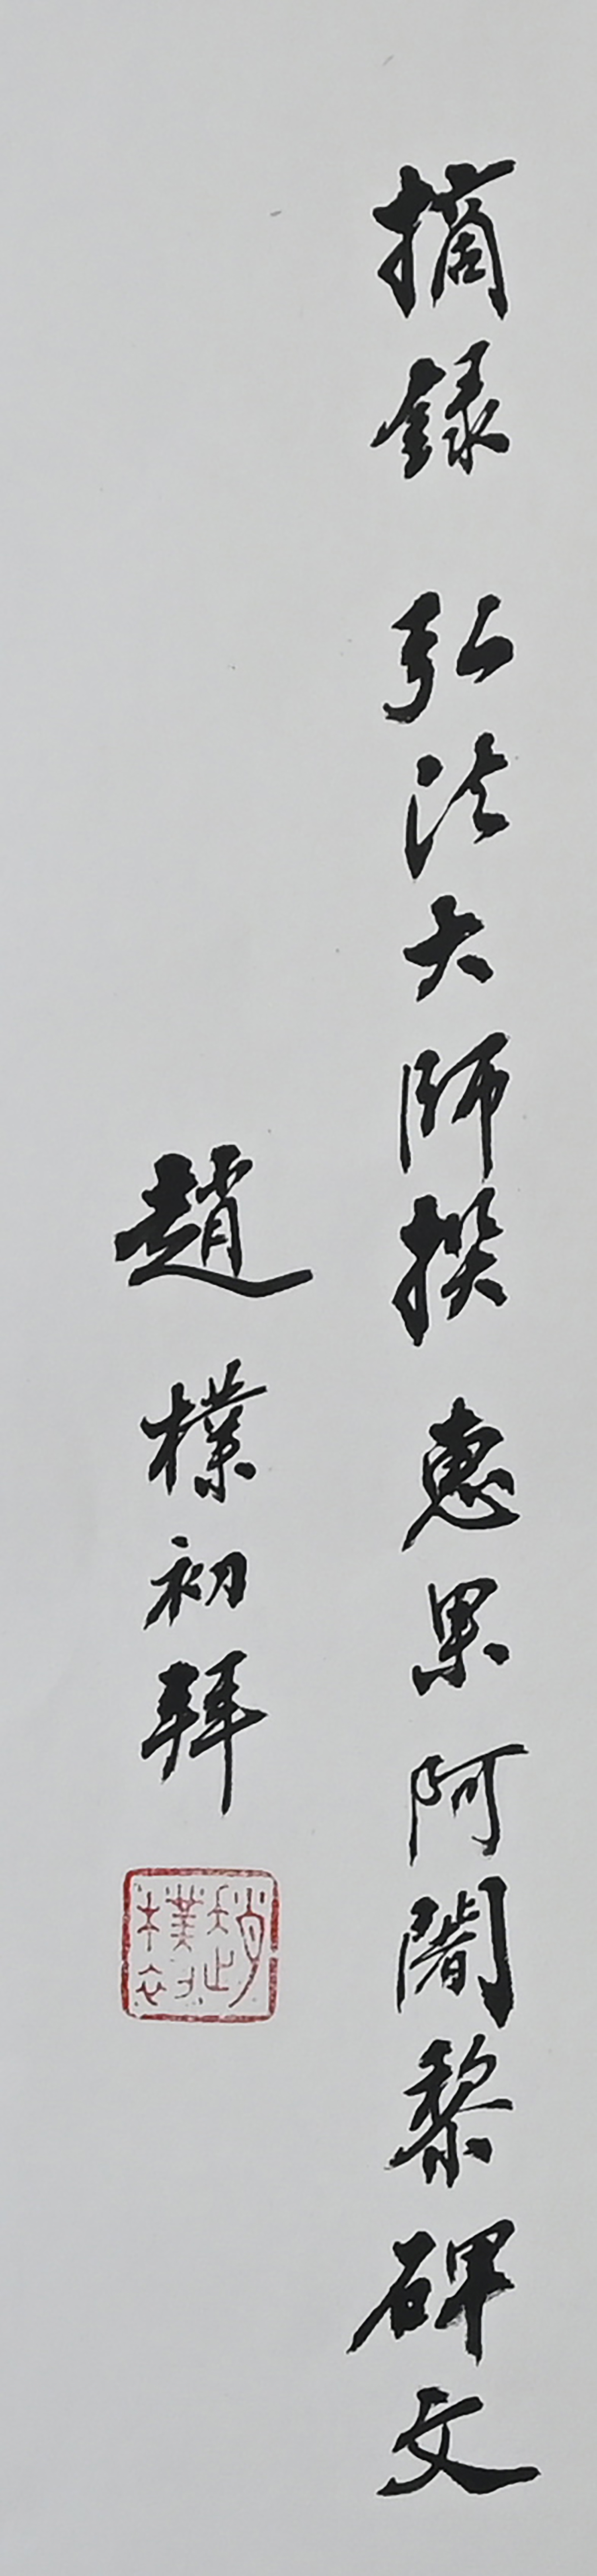 摘錄 弘法大師撰 惠果阿闍黎碑文
趙樸初拜
趙樸初